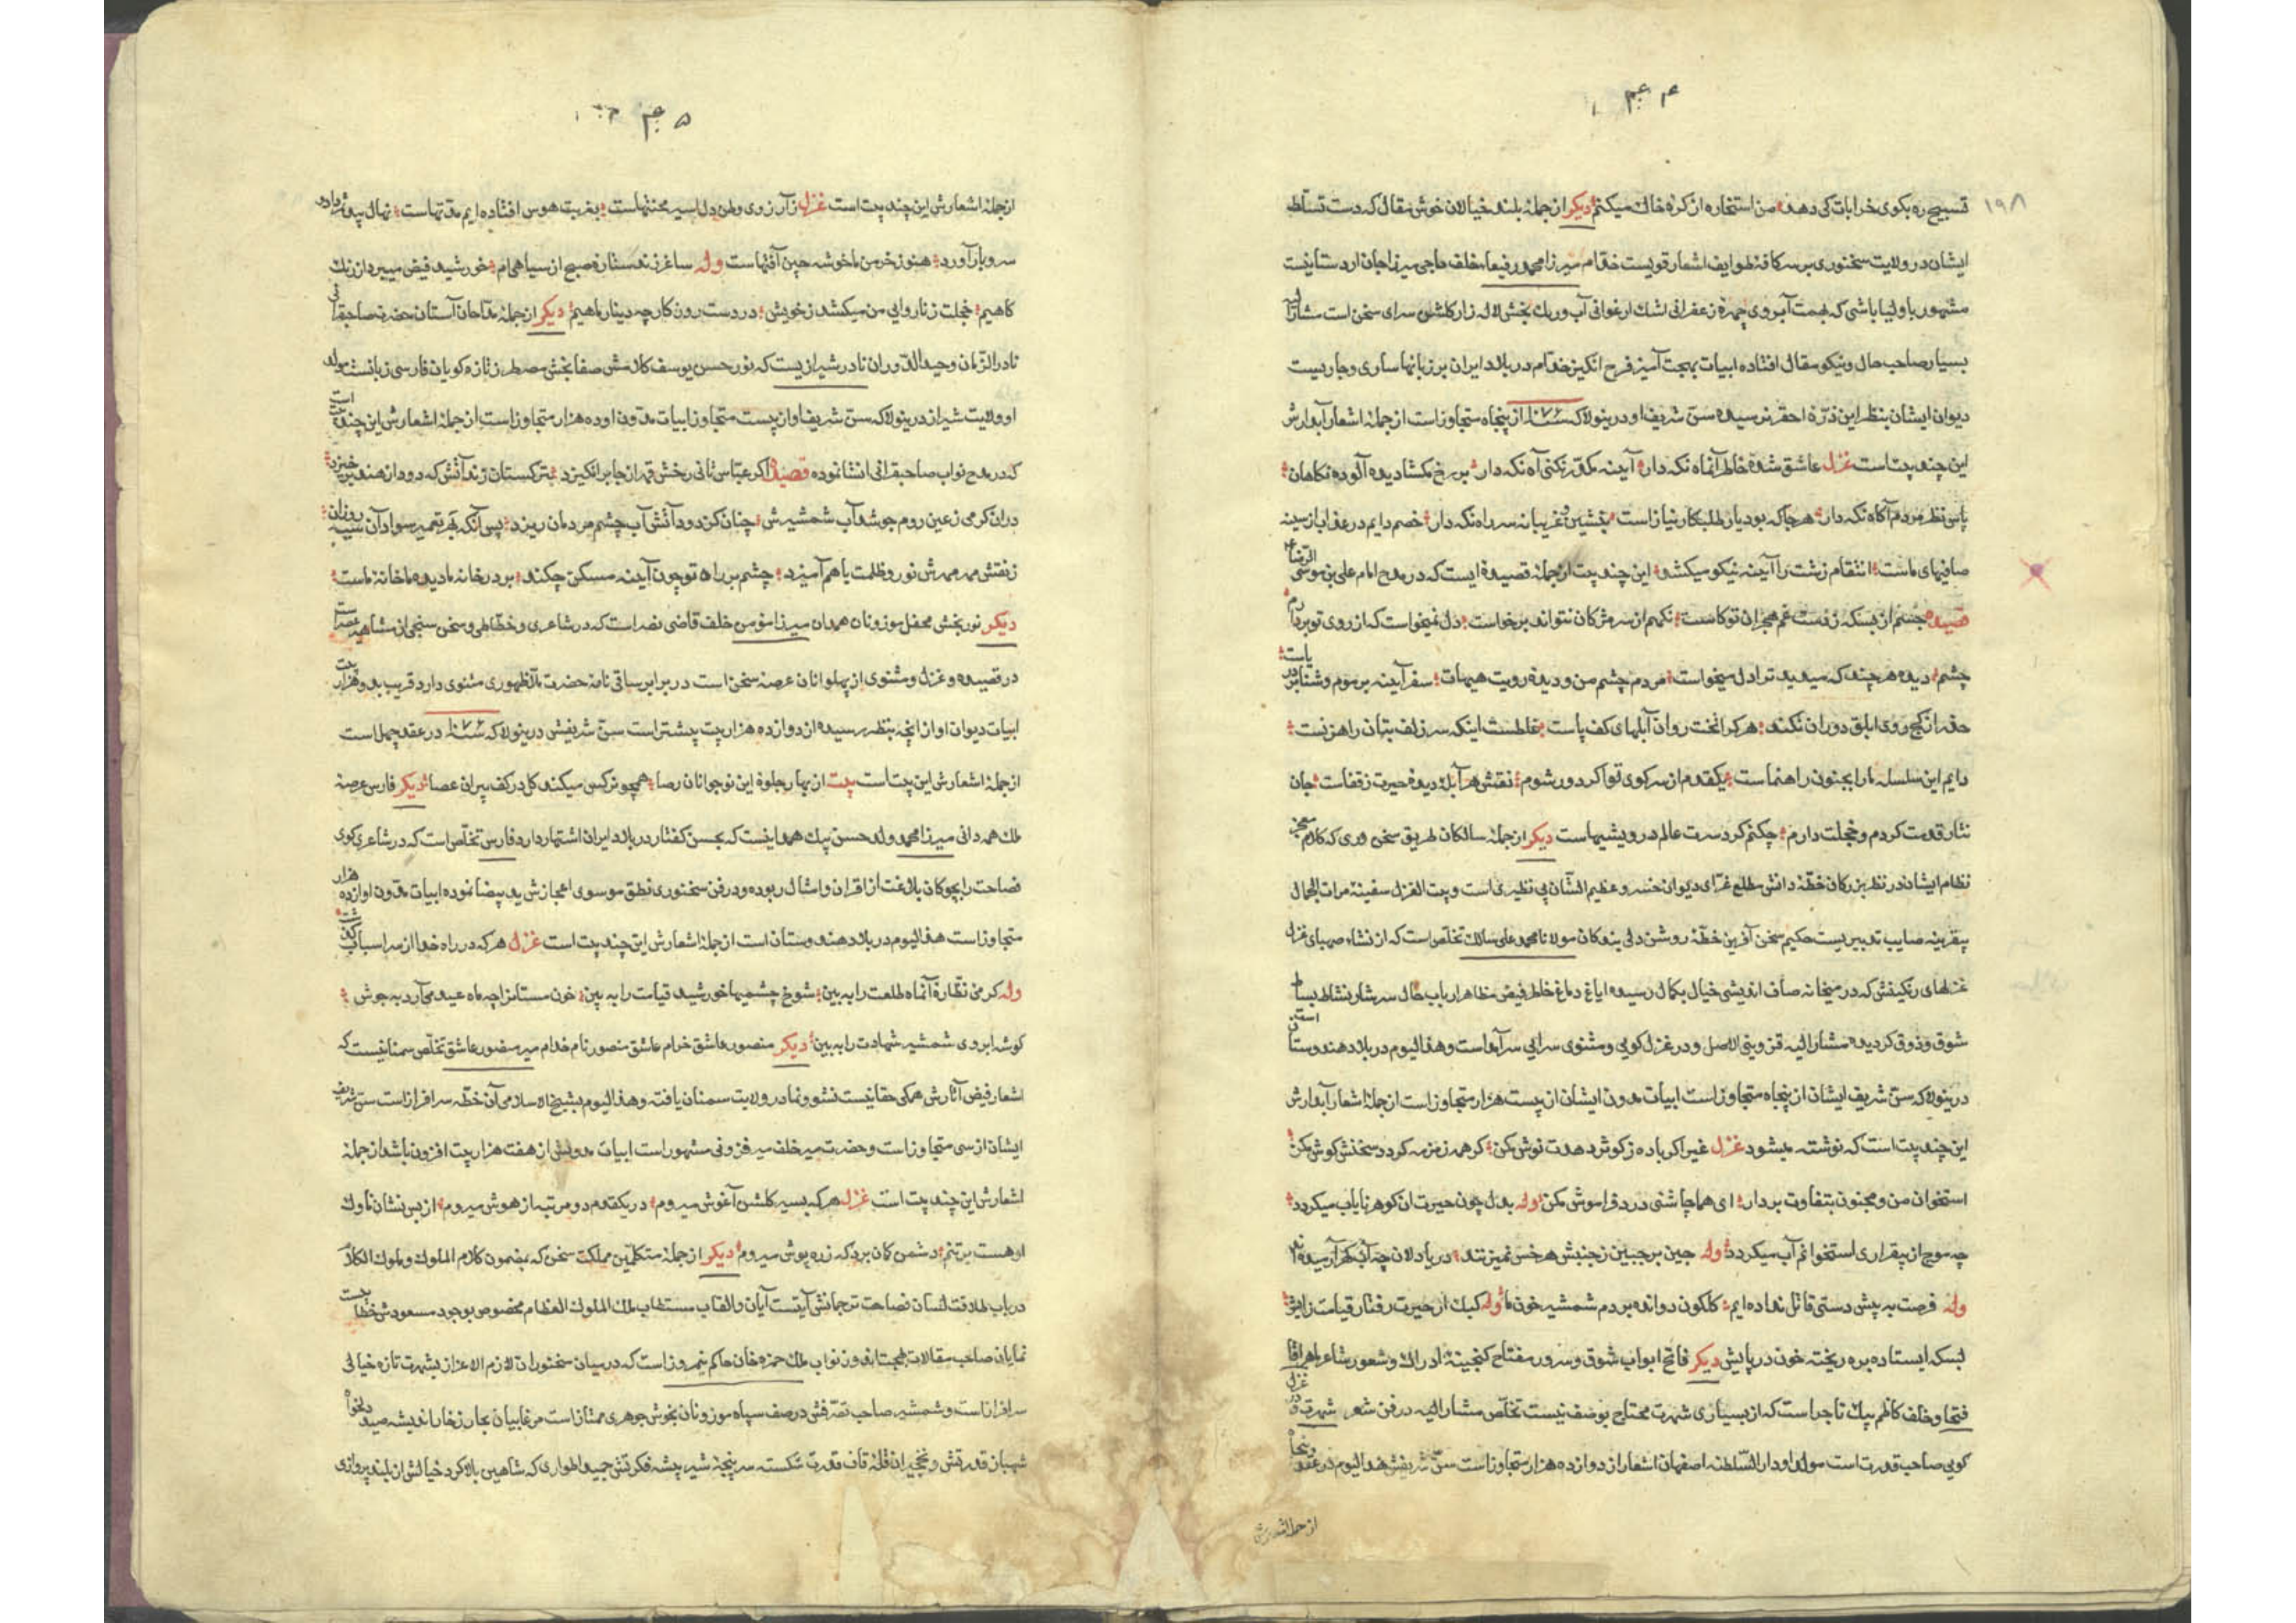 ۱۹۸
تسبیح ره بکوی خرابات کی دهد من استخاره از کره خاک میکنم دیکر از جملۀ بلند خیالان خوش مقال که دست تسلط
ایشان در ولایت سخنوری بر سر کافۀ طوایف اشعار قویست خدام میرزا محمد رفیعا خلف حاجی میرزا جان اردستانیست
مشهور باولیا باشی که بهمت آبروی چهرۀ زعفرانی اشک ارغوانی آب و رنک بخش لاله زار کلشن سرای سخن است
بسیار صاحب حال و نیکو مقال افتاده ابیات بهجت آمیز فرح انکیز خدام در بلاد ایران بر زبانها ساری و جاریست
دیوان ایشان بنظر این ذرۀ احقر نرسیده سن شریف او درینولا که سنه ۱۰۷۶ از پنجاه متجاوز است از جملۀ اشعار آبدارش
این چند بیت است غزل عاشق شدۀ خاطر آنماه نکه دار آیینه مکدر نکنی آه نکه دار بر رخ مکشا دیده آلوده نکاهان
پاس نظر مردم آکاه نکه دار هر جا که بود یار طلبکار نیاز است بنشین و غریبانه سر راه نکه دار خصم دایم در عذاب از سینه
صافیهای ماست انتقام زشت را آیینه نیکو میکشد این چند بیت از جملۀ قصیدۀ ایست که در مدح امام علی بن موسی الرضا
قصیده جسم از بسکه ز دست غم هجران تو کاست نکهم از سر مژکان نتواند برخاست دل نمیخواست که از روی تو بردارم
چشم دیده هر چند که میدید ترا دل میخواست مردم چشم من و دیدۀ رویت هیهات سفر آینه بر موم و شنا بر دریاست
حذر از کج روی ابلق دوران نکند هر کرا تخت روان آبلهای کف پاست غلطست اینکه سر زلف بتان راهزنست
دایم این سلسله ما را بجنون راهنماست یکقدم از سر کوی تو اکر دور شوم نقش هر آبله دیدۀ حیرت ز قفاست جان
نثار قدمت کردم و خجلت دارم چکنم کرد سرت عالم درویشیهاست دیکر از جملۀ سالکان طریق سخن وری که کلام
نظام ایشان در نظر بزرکان خطۀ دانش مطلع غرای دیوان خسرو عظیم الشان بی نظیری است و بیت الغزل سفینۀ مرات الجمال
بیقرینه صایب تدبیریست حکیم سخن آفرین خطۀ روشن دلی بندکان مولانا محمد علی سالک تخلص است که از نشاء صهبای غزل
غزلهای رنکینش که در میخانه صاف اندیشی خیال بکمال رسیده ایاغ دماغ خاطر فیض مظاهر ارباب حال سرشار نشاط
شوق و ذوق کردیده مشار الیه قزوینی الاصل و در غزل کویی و مثنوی سرایی سر آمد است و هذا الیوم در بلاد هندوستان است
درینولا که سن شریف ایشان از پنجاه متجاوز است ابیات مدون ایشان از بیست هزار متجاوز است از جملۀ اشعار آبدارش
این چند بیت است که نوشته میشود غزل غیر اکر باده ز کوثر دهدت نوش مکن کر همه زمزمه کردد سخنش کوش مکن
استخوان من و مجنون بتفاوت بردار ای هما چاشنی درد فراموش مکن وله بدل چون حیرت ان کوهر نایاب میکردد
چه موج از بیقراری استخوانم آب میکردد وله چین بر جبین ز جنبش هر خس نمیزنند دریا دلان چه آب کهر آرمیده اند
وله فرصت به پیش دستی قاتل نداده ایم کلکون دوانده بر دم شمشیر خون ما وله کبک از حیرت رفتار قیامت زایش
بسکه ایستاده بره ریخته خون در پایش دیکر فاتح ابواب شوق و سرور مفتاح کنجینۀ ادراک و شعور شاعر ماهر
فتحا و خلف کاظم بیک تاجر است که از بسیاری شهرت محتاج بوصف نیست تخلص مشار الیه در فن شعر شهرت و در غزل
کویی صاحب قدرت است مولد او دار السلطنه اصفهان اشعار از دوازده هزار متجاوز است سن شریفش هذا الیوم در عقد پنجاه
از جملۀ اشعارش
از جملۀ اشعارش این چند بیت است غزل ز آرزوی وطن دل اسیر محنتهاست بغربت هوس افتاده ایم مدتهاست نهال
سرو بار آورد هنوز خرمن ما خوشه چین آفتهاست وله ساغر زند ستاره صبح از سیاهی ام خورشید فیض میبرد از رنک
کاهیم خجلت ز ناروایی من میکشد ز خویش در دست روزکار چه دینار ماهیم دیکر از جملۀ مداحان آستان حضرت صاحبقرانی
نادر الزمان وحید الدوران نادر شیرازیست که نور حسن یوسف کلامش صفا بخش مصطر تازه کویان فارسی زبانست مولد
او ولایت شیراز درینولا که سن شریف او از بیست متجاوز ابیات مدون او ده هزار متجاوز است از جملۀ اشعارش این چند بیت است
که در مدح نواب صاحبقرانی انشا نموده قصیده اکر عباس ثانی رخش قهر از جا برانکیزد بترکستان زند آتش که دود از هند برخیزد
در ان کرمی زعین روم جوشد آب شمشیرش چنان کز دود آتش آب چشم مردمان ریزد پس آنکه بهر تعمیر سواد آن سیه روزان
ز نقش مهر مهرش نور و ظلمت با هم آمیزد چشم بر راه تو چون آیینه مسکن چکند بر در خانه ما دیده ما خانۀ ماست
دیکر نور بخش محفل موزونان همدان میرزا مؤمن خلف قاضی نصر است که در شاعری و خطاطی و سخن سنجی از مشاهیر عصر است
در قصیده و غزل و مثنوی از پهلوانان عرصه سخن است در برابر ساقی نامۀ حضرت ملا ظهوری مثنوی دارد قریب بدو هزار بیت
ابیات دیوان او از انچه بنظر رسیده از دوازده هزار بیت بیشتر است سن شریفش درینولا که سنه ۱۰۷۶ در عقد چهل است
از جملۀ اشعارش این بیت است بیت از بهار جلوۀ این نوجوانان رصا همچو نرکس میکند کل در کف پیران عصا دیکر فارس عرصۀ
ملک همه دانی میرزا محمد ولد حسن بیک همدانیست که بحسن کفتار در بلاد ایران اشتهار دارد فارس تخلص است که در شاعری کوی
فصاحت را بچوکان بلاغت از اقران و امثال ربوده و در فن سخنوری نطق موسوی اعجازش ید بیضا نموده ابیات مدون او از ده هزار
متجاوز است هذا الیوم در بلاد هندوستان است از جملۀ اشعارش این چند بیت است غزل هر که در راه خدا از سر اسباب کذشت
وله کرمی نظارۀ آنماه طلعت را به بین شوخ چشمیها خورشید قیامت را به بین خون مستانرا چه ماه عید می آرد به جوش
کوشه ابروی شمشیر شهادت را به بین دیکر منصور عاشق خرام عاشق منصور نام خدام میر منصور عاشق تخلص سمنانیست که
اشعار فیض آثارش همکی حقانیست نشو و نما در ولایت سمنان یافته و هذا الیوم بشیخ الاسلامی آن خطه سرافراز است سن شریف
ایشان از سی متجاوز است و حضرت میر خلف میر فزونی مشهور است ابیات مدونش از هفت هزار بیت افزون باشد از جملۀ
اشعارش این چند بیت است غزل هر که بسیر کلشن آغوش میروم در یکقدم دو مرتبه از هوش میروم از بس نشان ناوک
او هست بر تنم دشمن کمان برد که زره پوش میروم دیکر از جملۀ متکلمین مملکت سخن که بمضمون کلام الملوک و ملوک الکلام
در باب طلاقت لسان فصاحت ترجمانش آیتست آیان و القاب مستطاب ملک الملوک العظام مخصوص بوجود مسعودش
نمایان صاحب مقالات نواب ملک حمزه خان حاکم نیمروز است که در میان سخنوران لازم الاعزاز بشهرت تازه خیالی
سرافراز است و شمشیر صاحب تصرفش در صف سپاه موزونان بخوش جوهری ممتاز است مرغابیان بحار زخار اندیشه صید
شهباز قدرتش و نخچیران قلۀ قاف قدرت شکسته سر پنجۀ شیر بیشه فکرتش حمید اطواری که شاهین بالا کرد خیالش از بلند پروازی